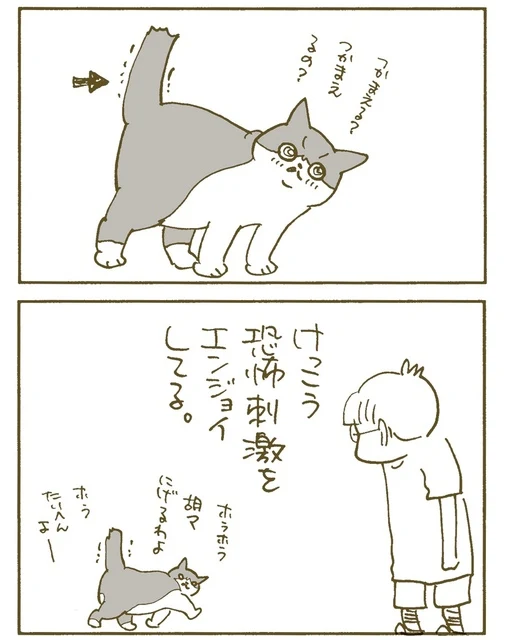 つかまえる？
つかまえ
るの？
けっこう
恐怖刺激を
エンジョイ
してる。
ホラホラ
胡マ
にげるわよ
ホラ
たいへん
よー